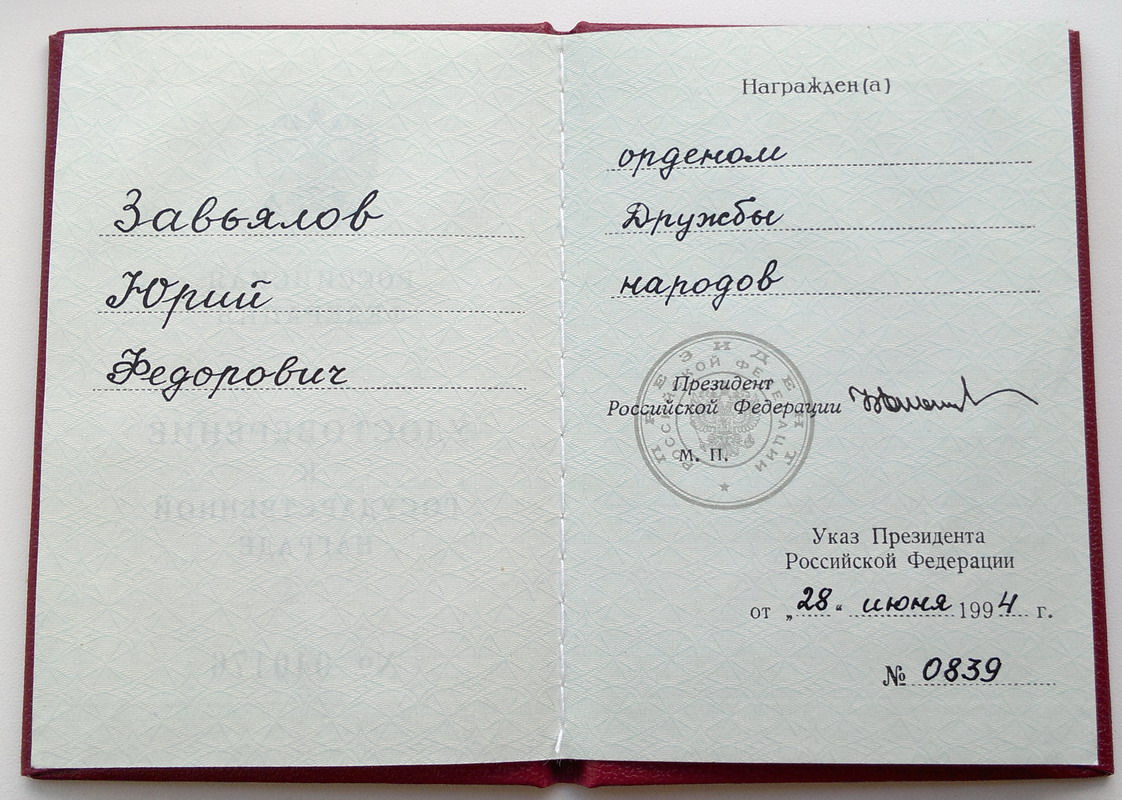 Завьялов
Юрий
Федорович
Награжден(а)
орденом
Дружбы
народов
ПРЕЗИДЕНТ
РОССИЙСКОЙ ФЕДЕРАЦИИ
Президент
Российской Федерации
М. П.
Указ Президента
Российской Федерации
от „28“ июня 1994 г.
№ 0839